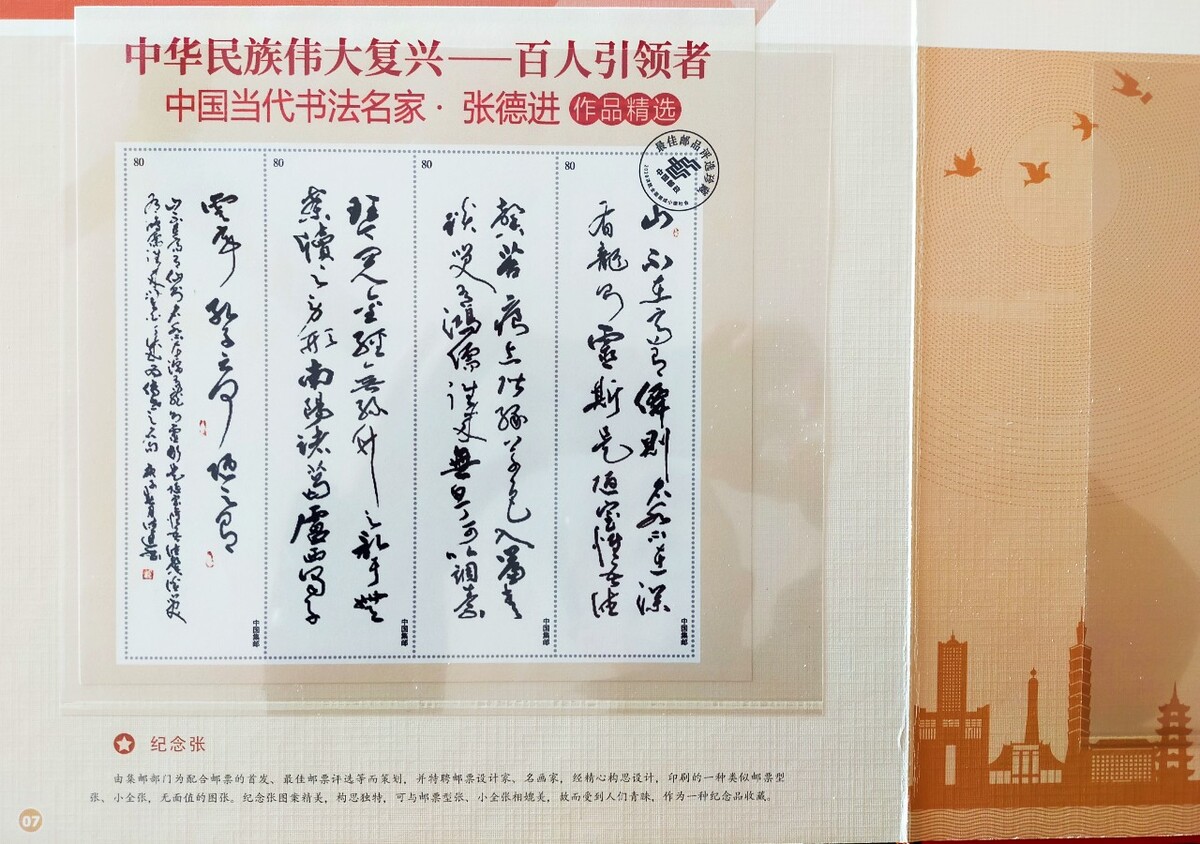 中华民族伟大复兴——百人引领者
中国当代书法名家·张德进 作品精选
最佳邮品评选珍藏
80
80
80
80
山不在高有僊則名水不在深
有龍則靈斯是陋室惟吾德
馨苔痕上階緑草色入簾青
談笑有鴻儒往来無白丁可以調素
琴閲金經無絲竹之亂耳無
案牘之勞形南陽諸葛廬西蜀子
雲亭孔子云何陋之有
中国集邮
中国集邮
中国集邮
中国集邮
纪念张
由集邮部门为配合邮票的首发、最佳邮票评选等而策划，并特聘邮票设计家、名画家，经精心构思设计，印刷的一种类似邮票型
张、小全张，无面值的图张。纪念张图案精美，构思独特，可与邮票型张、小全张相媲美，故而受到人们青睐，作为一种纪念品收藏。
07